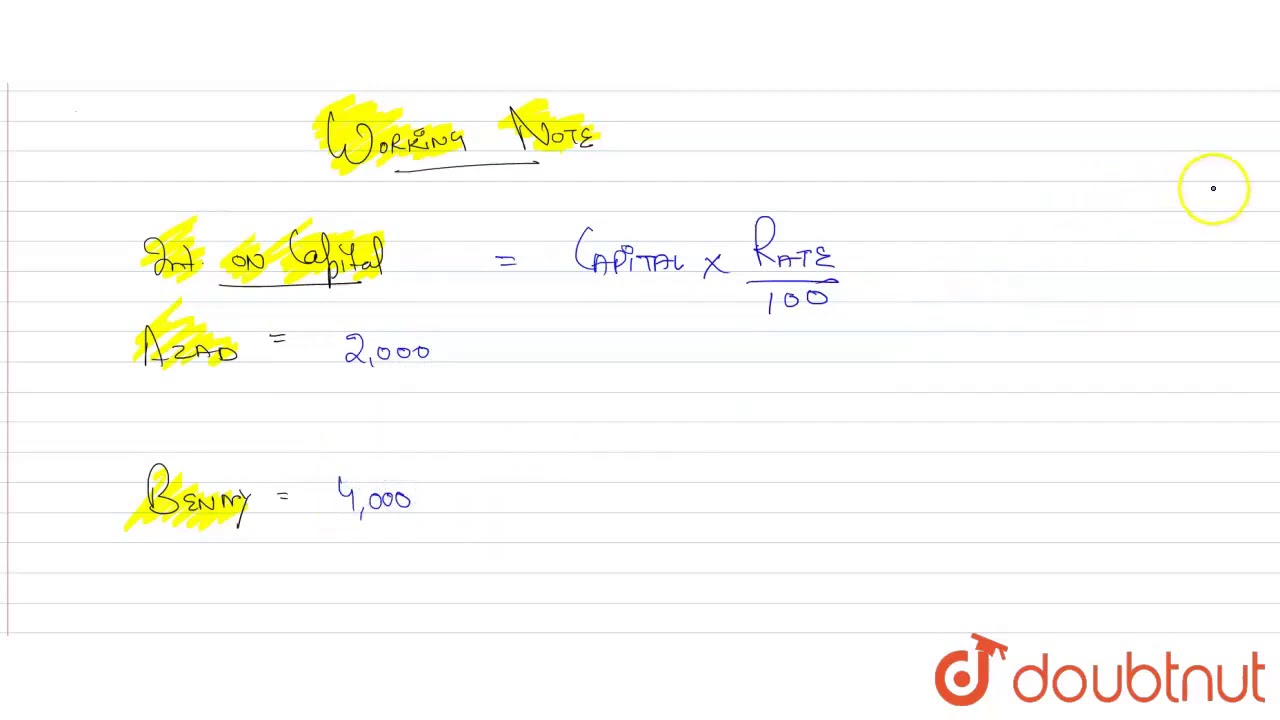 WORKING NOTE
Int. on Capital = CAPITAL × RATE/100
AZAD = 2,000
BENNY = 4,000
doubtnut